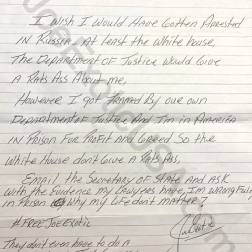 I wish I would have gotten Arrested
in Russia. At least the white house,
The Department of Justice would Give
A Rats Ass About me,
However I got framed By our own
Department of Justice And I'm in America
in Prison for Profit and Greed So the
White House dont Give A Rats Ass,
Email the Secretary of State and ask
with the Evidence my Lawyers have, I'm wrongfully
in Prison Why my Life don't matter?
#FREE JOE EXOTIC
They dont even have to do a